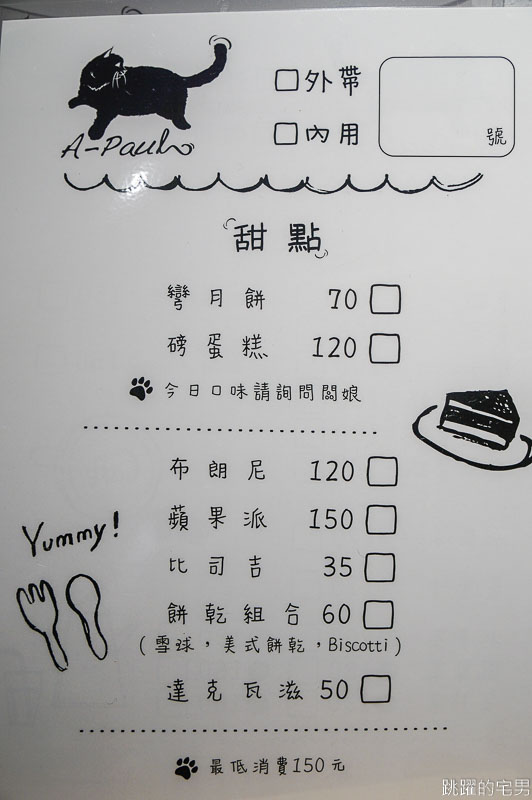 A-Paul
□外帶
□內用
號
甜點
彎月餅 70 □
磅蛋糕 120 □
今日口味請詢問闆娘
布朗尼 120 □
蘋果派 150 □
Yummy!
比司吉 35 □
餅乾組合 60 □
(雪球，美式餅乾，Biscotti)
達克瓦滋 50 □
最低消費150元
跳躍的宅男